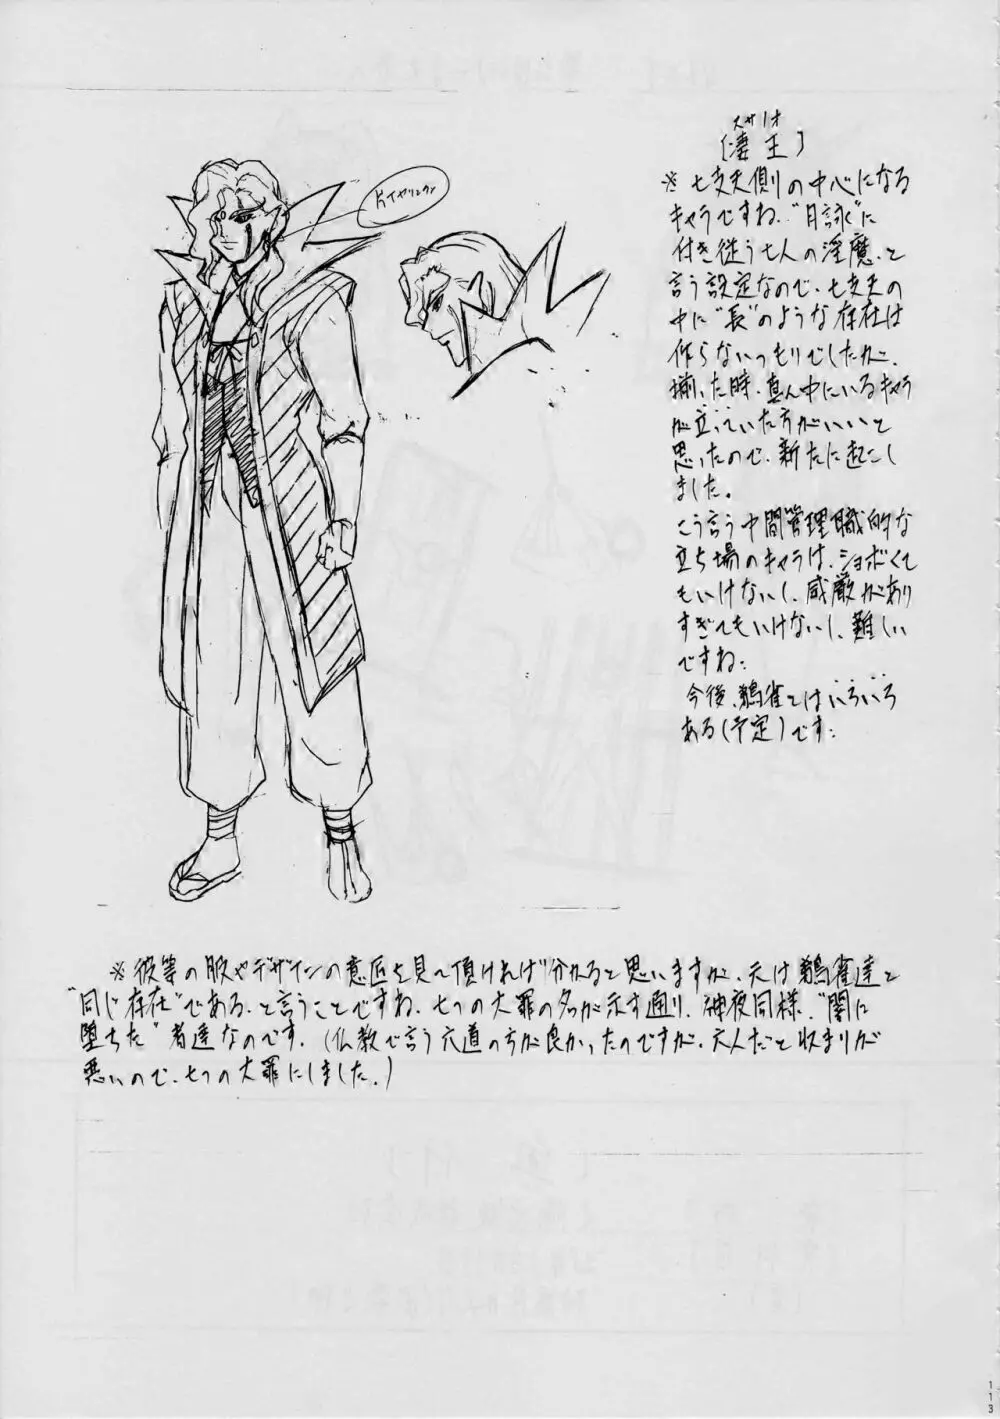 スサノオ
[凄王]
片イヤリング
※七支夫側の中心になる
キャラですね、"月詠"に
付き従う七人の淫魔、と
言う設定なので、七支夫の
中に"長"のような存在は
作らないつもりでしたが、
揃った時、真ん中にいるキャラ
が立っていた方がいいと
思ったので、新たに起こし
ました。
こう言う中間管理職的な
立ち場のキャラは、ショボくて
もいけないし、威厳があり
すぎてもいけないし、難しい
ですね:
今後、鵺雀とはいろいろ
ある(予定)です:
※彼等の服やデザインの意匠を見て頂ければ分かると思いますが、元は鵺雀達と
"同じ存在"である、と言うことですね、七つの大罪の名が示す通り、神夜同様、"闇に
堕ちた"者達なのです、(仏教で言う六道の方が良かったのですが、六人だと収まりが
悪いので、七つの大罪にしました、)
113